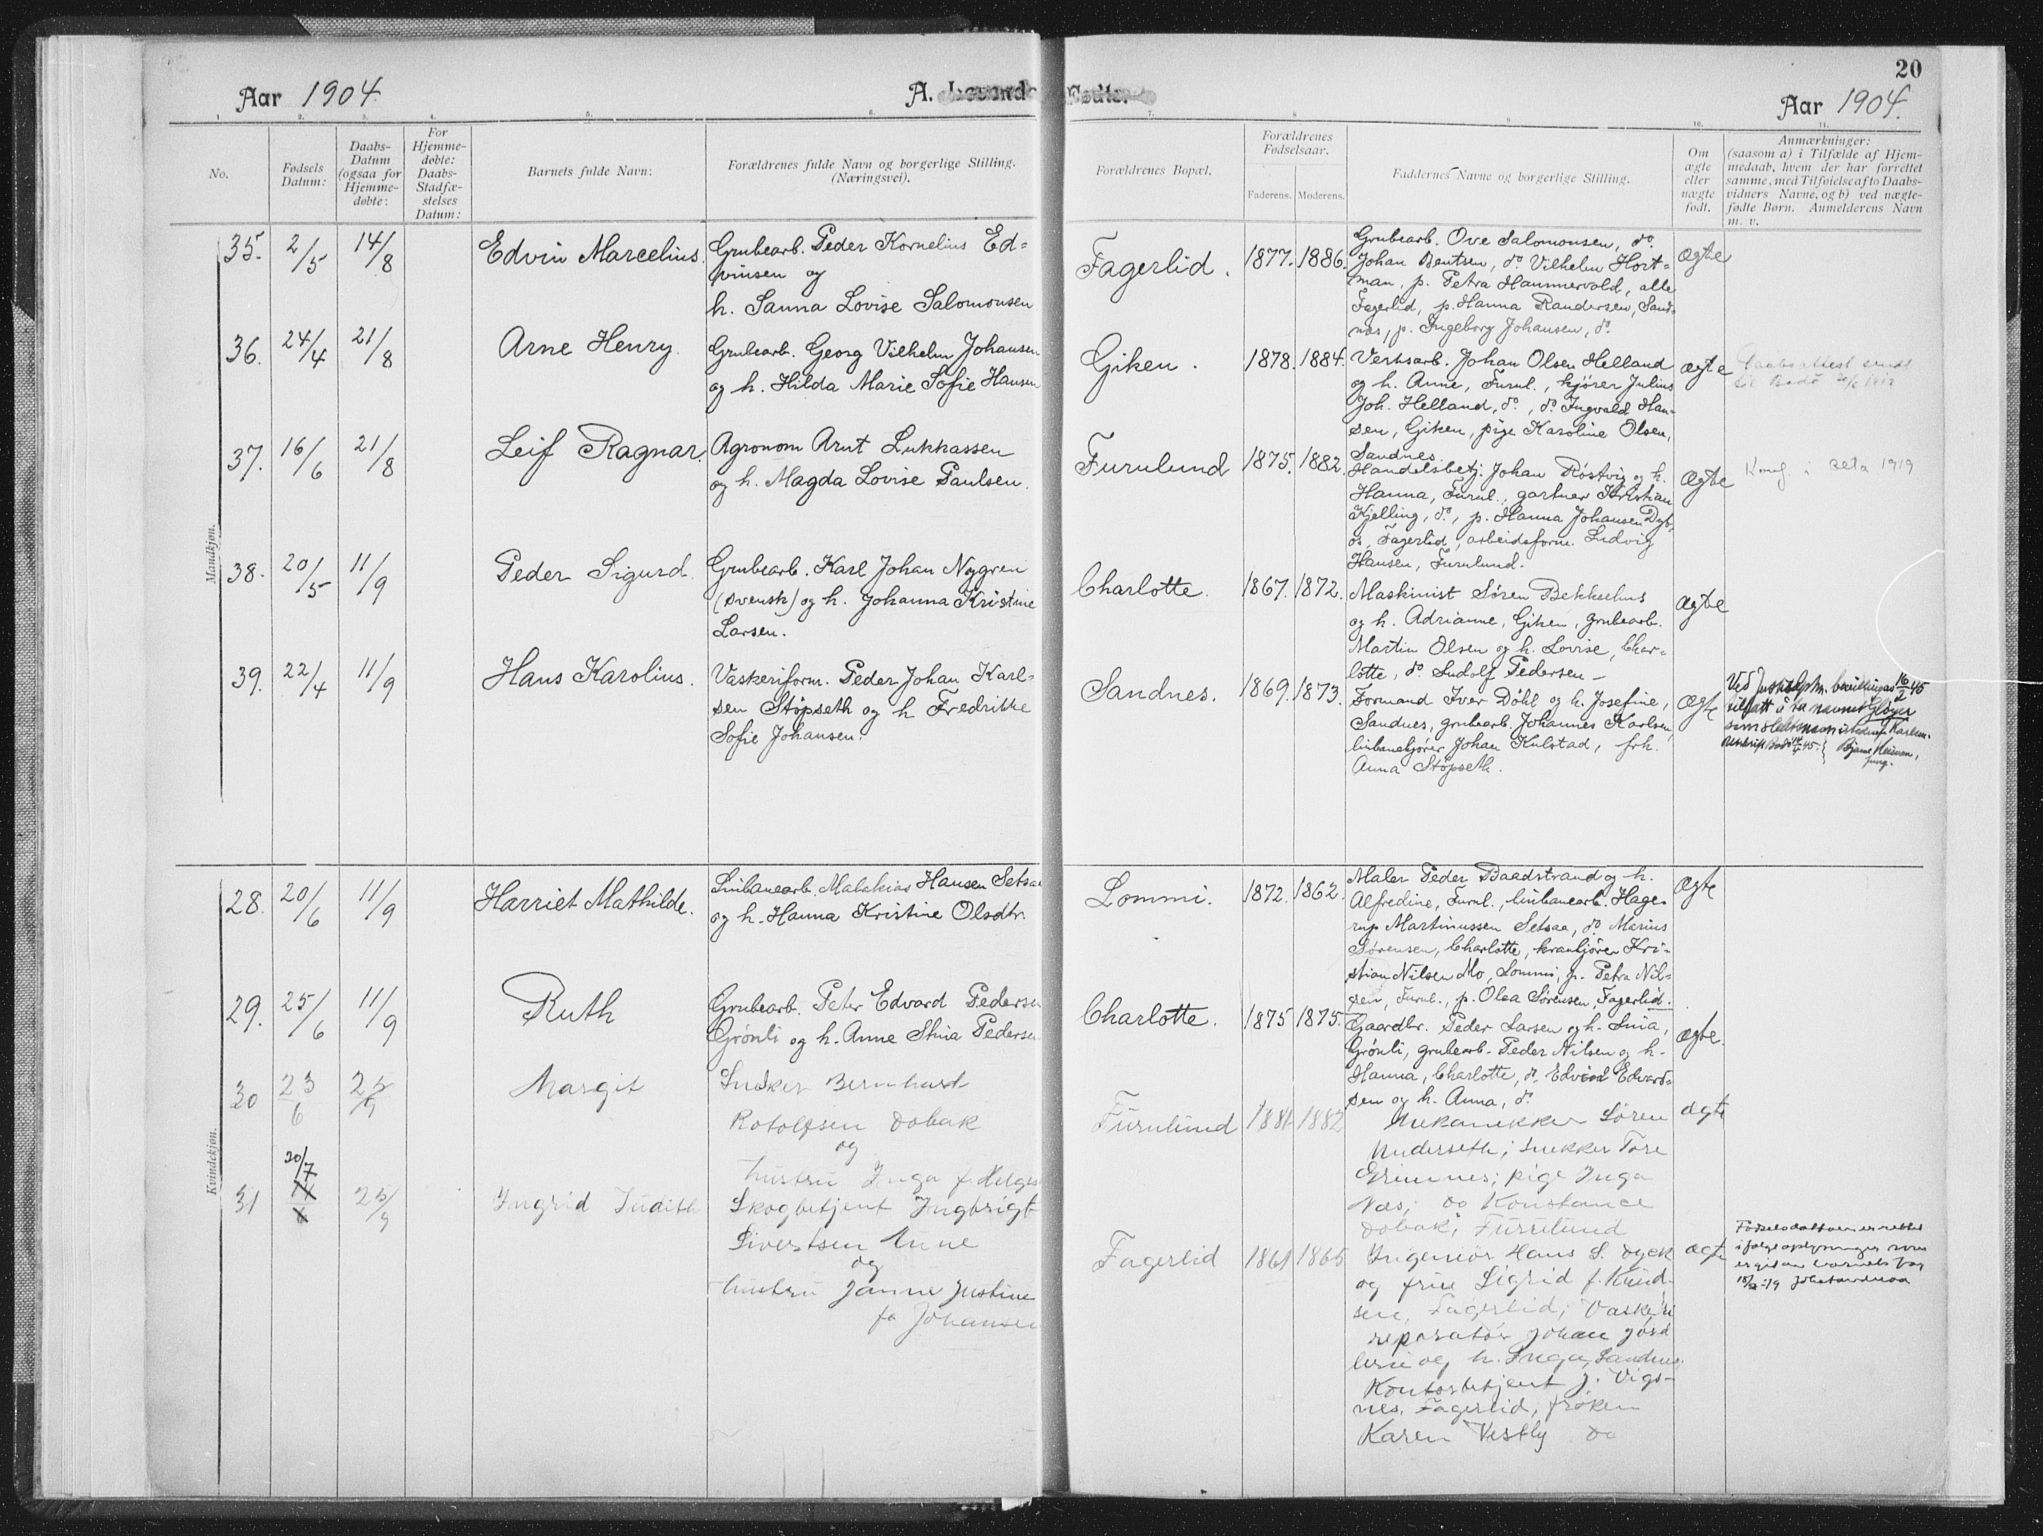 Aar 1904.
A.
20
Aar 1904.
1. 2. 3. 4. 5. 6. 7. 8 9 10. 11.
No.
Fødsels Datum:
Daabs-Datum (ogsaa for Hjemme-døbte:
For Hjemme-døbte: Daabs-Stadfæ-stelses Datum:
Barnets fulde Navn:
Forældrenes fulde Navn og borgerlige Stilling. (Næringsvei).
Forældrenes Bopæl.
Forældrenes Fødselsaar.
Faderens. Moderens.
Faddernes Navne og borgerlige Stilling.
Om ægte eller uægte født.
Anmærkninger:
(saasom a) i Tilfælde af Hjem-
medaab, hvem der har forrettet
samme, med Tilføielse af to Daabs-
vidners Navne, og b) ved uægte-
fødte Børn. Anmelderens Navn
m. v.
Mandkjøn.
35. 2/5 14/8 Edvin Marcelius.
Grubearb. Peder Kornelius Ed=
vinsen og
h. Sanna Lovise Salomonsen
Fagerlid. 1877. 1886.
Grubearb. Ove Salomonsen, do.
Johan Bentsen, do. Vilhelm Hort=
man, p. Petra Hammervold, alle
Fagerlid, p. Hanna Randersen, Sand=
nes, p. Ingeborg Johansen, do.
Ægte
36. 24/4 21/8 Arne Henry.
Grubearb. Georg Vilhelm Johansen
og h. Hilda Marie Sofie Hansen
Giken. 1878. 1884.
Verksarb. Johan Olsen Helland
og h. Anne, Furul., kjører Julius
Joh. Helland, do., do. Ingvald Han=
sen, Giken, pige Karoline Olsen,
Sandnes.
Ægte
Daabsattest sendt
37. 16/6 21/8 Leif Ragnar.
Agronom Arnt Lukkassen
og h. Magda Lovise Paulsen.
Furulund 1875. 1882.
Handelsbetj. Johan Røstvig og h.
Hanna, Furul., gartner Kristian
Kjelling, do., p. Hanna Johansen
Fagerlid, arbeidsform. Ludvig
Hansen, Furulund.
Ægte
Konf. i 1919
38. 20/5 11/9 Peder Sigurd.
Grubearb. Karl Johan Nygren
(svensk) og h. Johanna Kristine
Larsen.
Charlotte. 1867. 1872.
Maskinist Søren Bekkelhus
og h. Adrianne, Giken, grubearb.
Martin Olsen og h. Lovise, Char=
lotte, do. Ludolf Pedersen -
Ægte
39. 22/4 11/9 Hans Karolius.
Vaskeriform. Peder Johan Karl=
sen Støpseth og h. Fredrikke
Sofie Johansen.
Sandnes. 1869. 1873.
Formand Iver Döhl og h. Josefine,
Sandnes, grubearb. Johannes Karlsen,
linbanekjører Johan Kulstad, frk.
Anna Støpseth.
Ægte
Kvindekjøn.
28. 20/6 11/9 Harriet Mathilde.
Linbanearb. Malakias Hansen Setsaa
og h. Hanna Kristine Olsdtr.
Lommi. 1872. 1862.
Maler Peder Baadstrand og h.
Alfredine, Furul., linbanearb. Hage=
rup Martinussen Setsaa, do. Marius
Sørensen, Charlotte, krankjører Kri=
stian Nilsen Mo, Lommi, p. Petra Nil=
sen, Furul., p. Olea Sørensen, Fagerlid.
Ægte
29. 25/6 11/9 Ruth
Grubearb. Peter Edvard Pedersen
Grønli og h. Anne Stina Pedersen
Charlotte. 1875 1875.
Gaardbr. Peder Larsen og h. Lina,
Grønli, grubearb. Peder Nilsen og h.
Hanna, Charlotte, do. Edvard Edvard=
sen og h. Anna, do.
Ægte.
30 23/6 25/9 Margit
Snekker Bernhard
Rotolfsen Dobak
og
hustru Inga f. Helges
Furulund 1881 1882
Mekanikker Søren
snekker Tore
Grimnes; pige Inga
Næs; do Konstance
Dobak, Furulund
ægte
31 20/7 25/9 Ingrid Judith
Skogbetjent Ingbrigt
Sivertsen
og
hustru Janna Justine
fø Johansen
Fagerlid 1861 1865
Ingeniør Hans S. Dyck
og frue Sigrid f. Knud-
sen, Fagerlid; Vaskeri
reparatør Johan
og h. Inga, Sandnes.
Kontorbetjent J. Vigs-
nes, Fagerlid, frøken
Karen Vestby do
ægte
Fødselsdatoen er rettet
ifølge oplysninger som
er git av barnets far